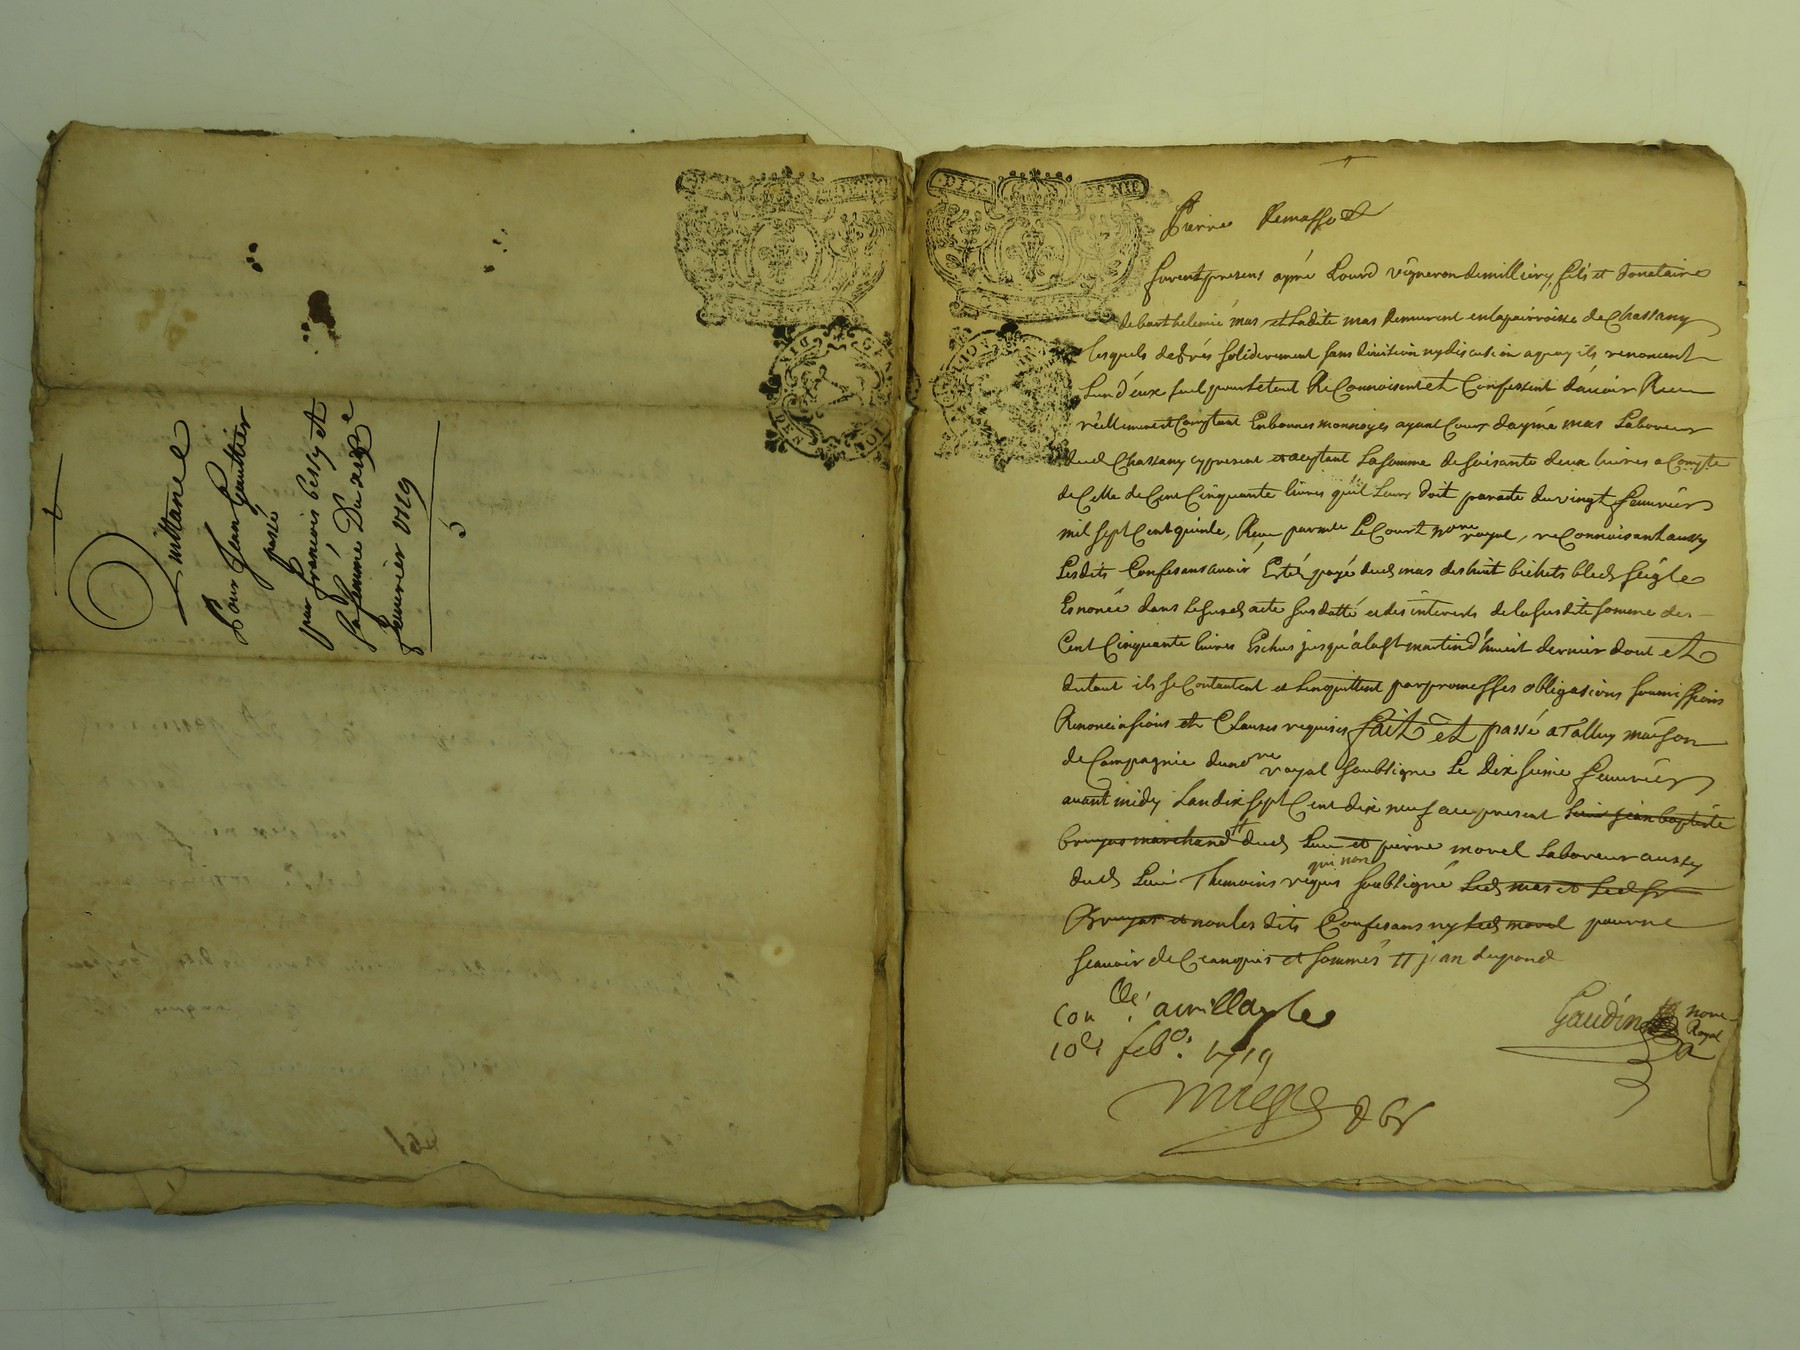 Quittance
Pour Jean Gautier
passé
par francois bessy et
sa femme Du
feuvrier 1719
5
Pierre
furent presens aymé Lourd vigneron de millery, fils et donataire
de barthelemie mas et Ladite mas demeurent en la parroisse de Chassany
lesquels de grés solidairement sans division ny discution a quoy ils renoncent
Lun d'eux seul pour le tout Reconnoisent et Confessent d'avoir Receu
réellement et Comptant En bonnes monnoyes ayant Cour d'aymé mas Laboureur
dud Chassany cy present et aceptant La somme de soisante deux livres a Compte
de Celle de Cent Cinquante livres qu'il Leurs doit par acte du vingt feuvrier
mil sept Cent quinze, Receu par me LeCourt nore royal, reConnoisant aussy
Lesdits Confesans avoir Estés payé dud mas des huit bichets bled seigle
Enoncé dans Le susd acte susdatté et des interests de la susdite somme de
Cent Cinquante livres Eschus jusqu'à la st martin d'hivert dernier dont et
dutout ils se Contantent et Lenquittent par promesses obligasions soumissions
Renonciasions et Clauses requises fait et passé a Talluy maison
de Campagnie du nore royal soubsigne Le dix sieme feuvrier
avant midy Lan dix sept Cent dix neuf a ce present sieur jean baptiste
bruyas marchand dud Lieu et pierre morel Laboureur aussy
dud Lieu Themoins requis qui non soubsigné Led mas et Led sr
Bruyas et non les dits Confesans ny led morel pour ne
scavoir de Ce enquis et sommés # jean dupond
Con lle
10e febo: 1719
Gaudin nore
Royal
DIX